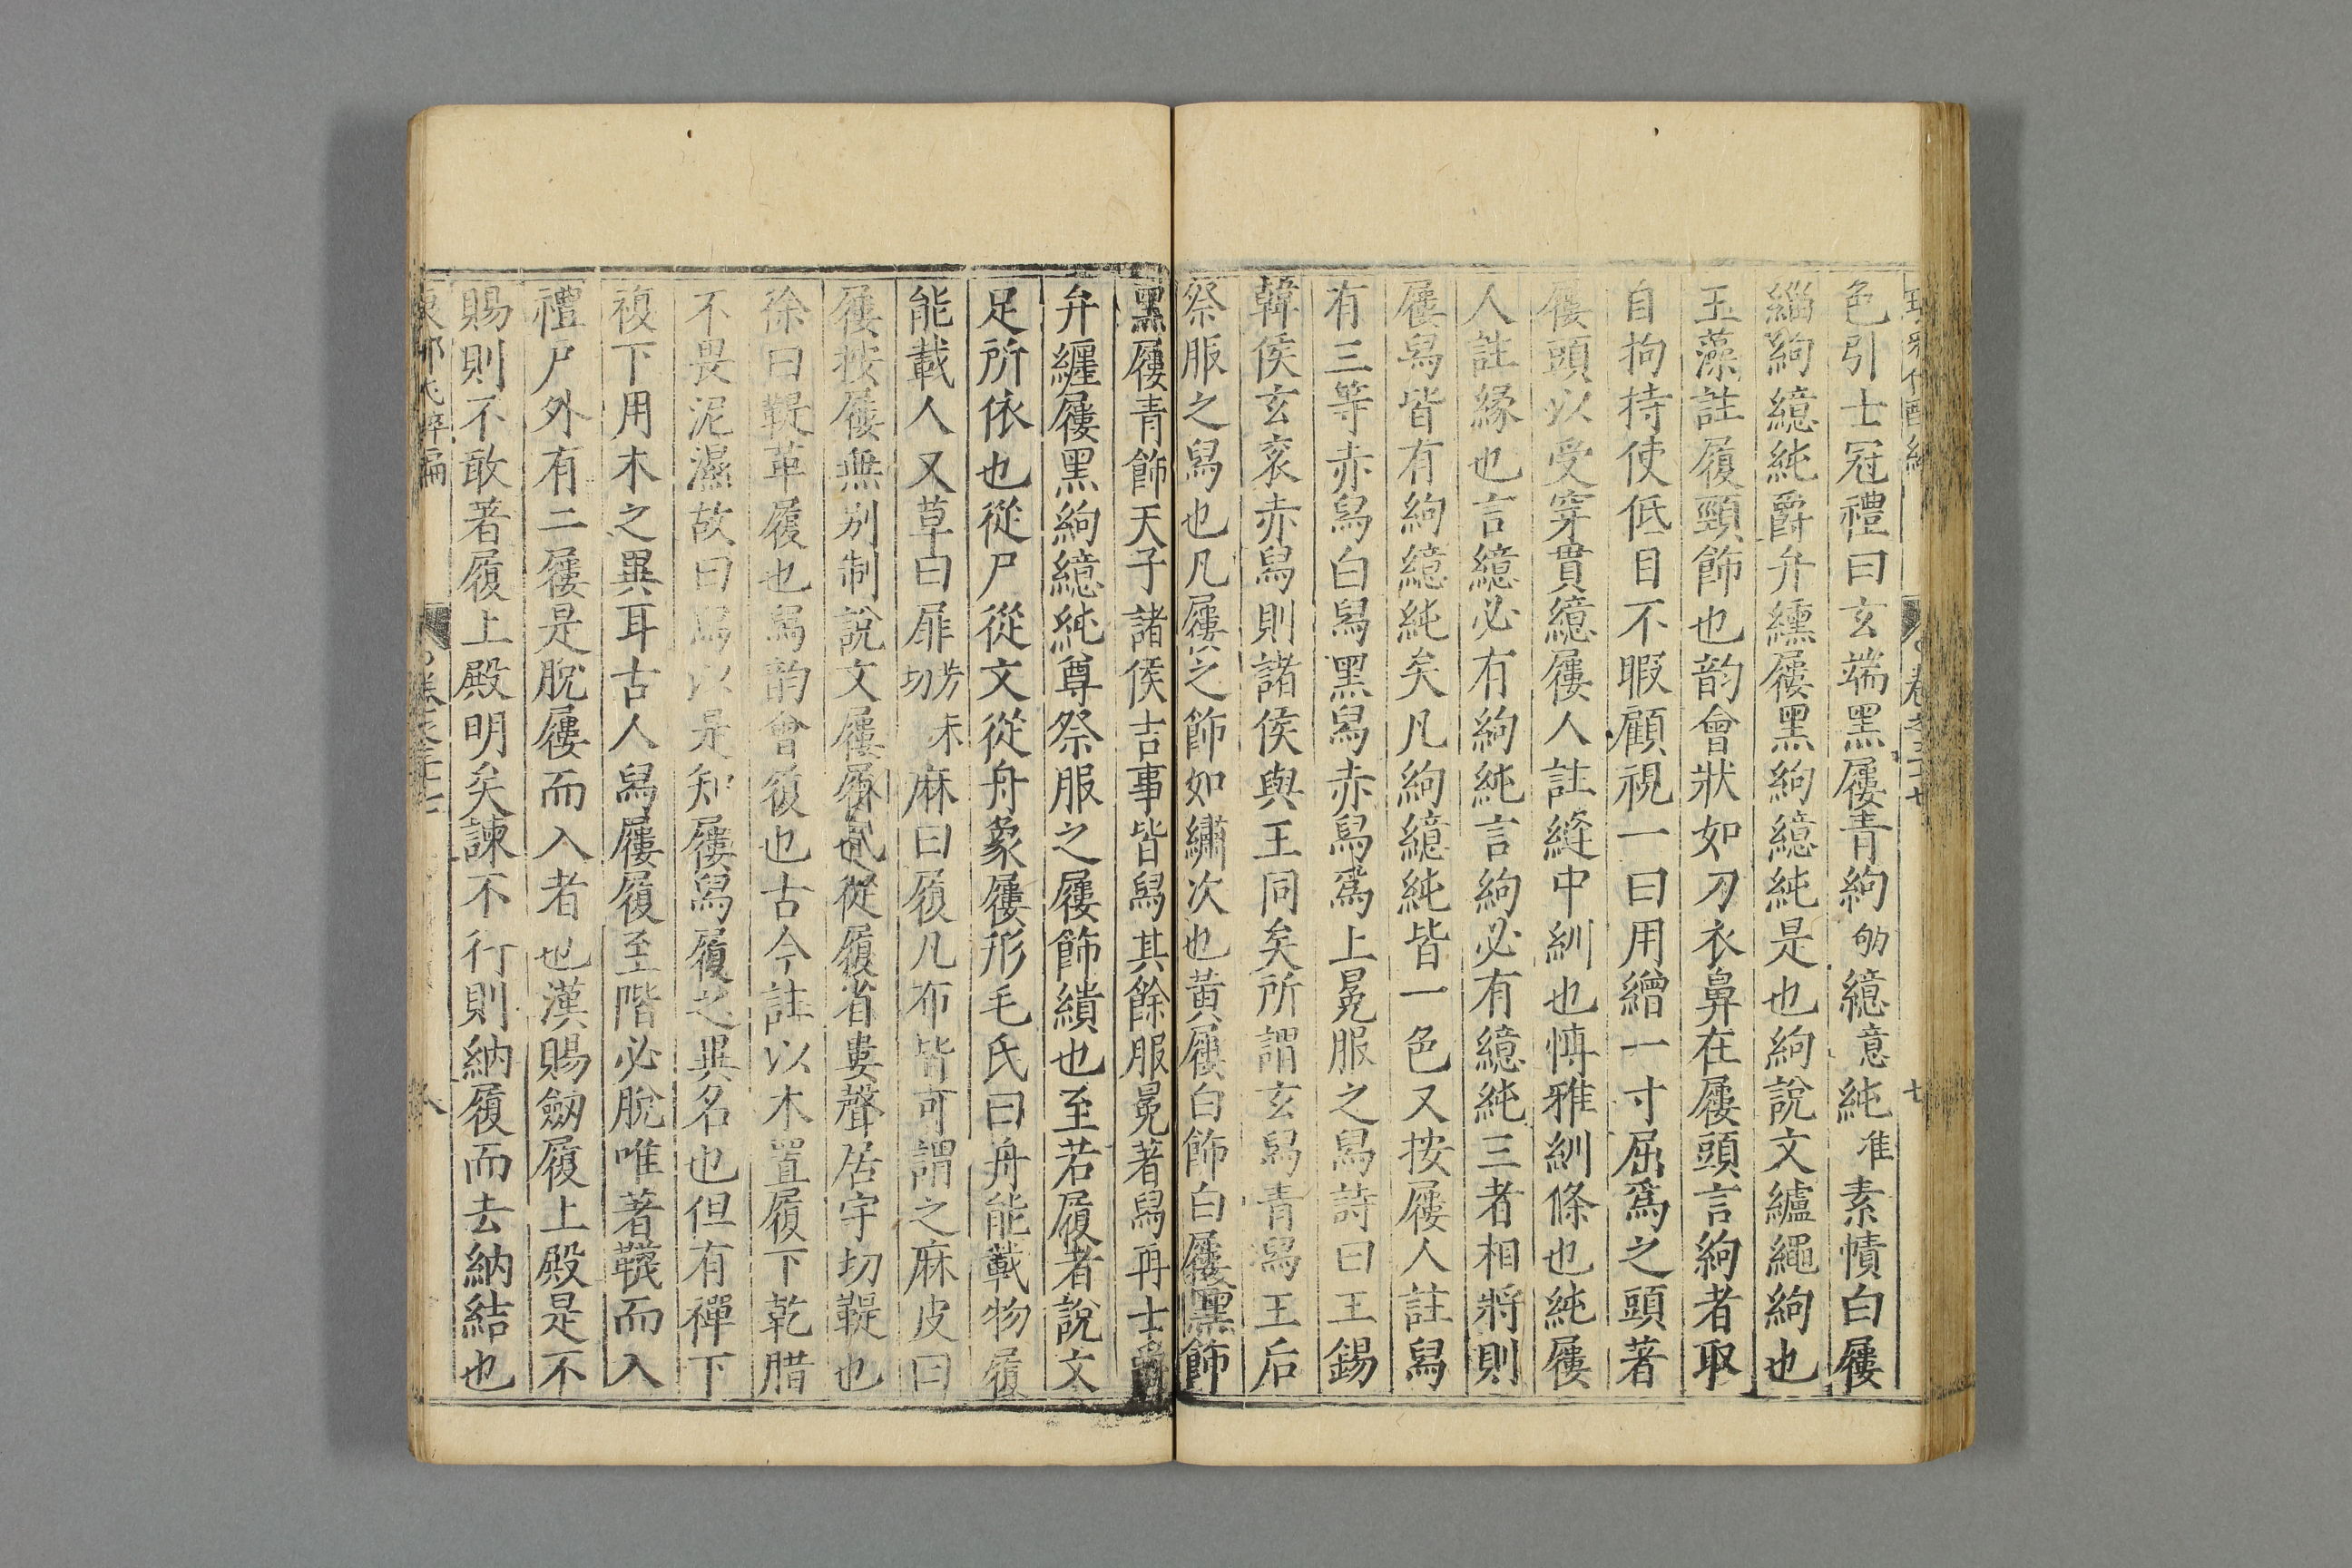 色引士冠禮曰玄端黑屨青絇 劬 繶 意 純 准 素幘白屨
緇絇繶純爵弁纁屨黑絇繶純是也絇說文纑繩絇也
玉藻註履頭飾也韵會狀如刀衣鼻在屨頭言絇者取
自拘持使低目不暇顧視一曰用繒一寸屈爲之頭著
屨頭以受穿貫繶屨人註縫中紃也博雅紃絛也純屨
人註緣也言繶必有絇純言絇必有繶純三者相將則
屨舄皆有絇繶純矣凡絇繶純皆一色又按屨人註舄
有三等赤舄白舄黑舄赤舄爲上冕服之舄詩曰王錫
韓侯玄衮赤舄則諸侯與王同矣所謂玄舄青舄王后
祭服之舄也凡屨之飾如繡次也黃屨白飾白屨黑飾
黑屨青飾天子諸侯吉事皆舄其餘服冕著舄再士爵
弁纁屨黑絇繶純尊祭服之屨飾繢也至若履者說文
足所依也從尸從文從舟象屨形毛氏曰舟能載物履
能載人又草曰屝 芳未切 麻曰履凡布皆可謂之麻皮曰
屨按屨無別制說文屨履也從履省婁聲居宇切鞮也
徐曰鞮革履也舄韵會復也古今註以木置履下乾腊
不畏泥濕故曰舄以是知屨舄履之異名也但有禪下
複下用木之異耳古人舄屨履至階必脫唯著韈而入
禮戶外有二屨是脫屨而入者也漢賜劒履上殿是不
賜則不敢著履上殿明矣諫不行則納履而去納結也